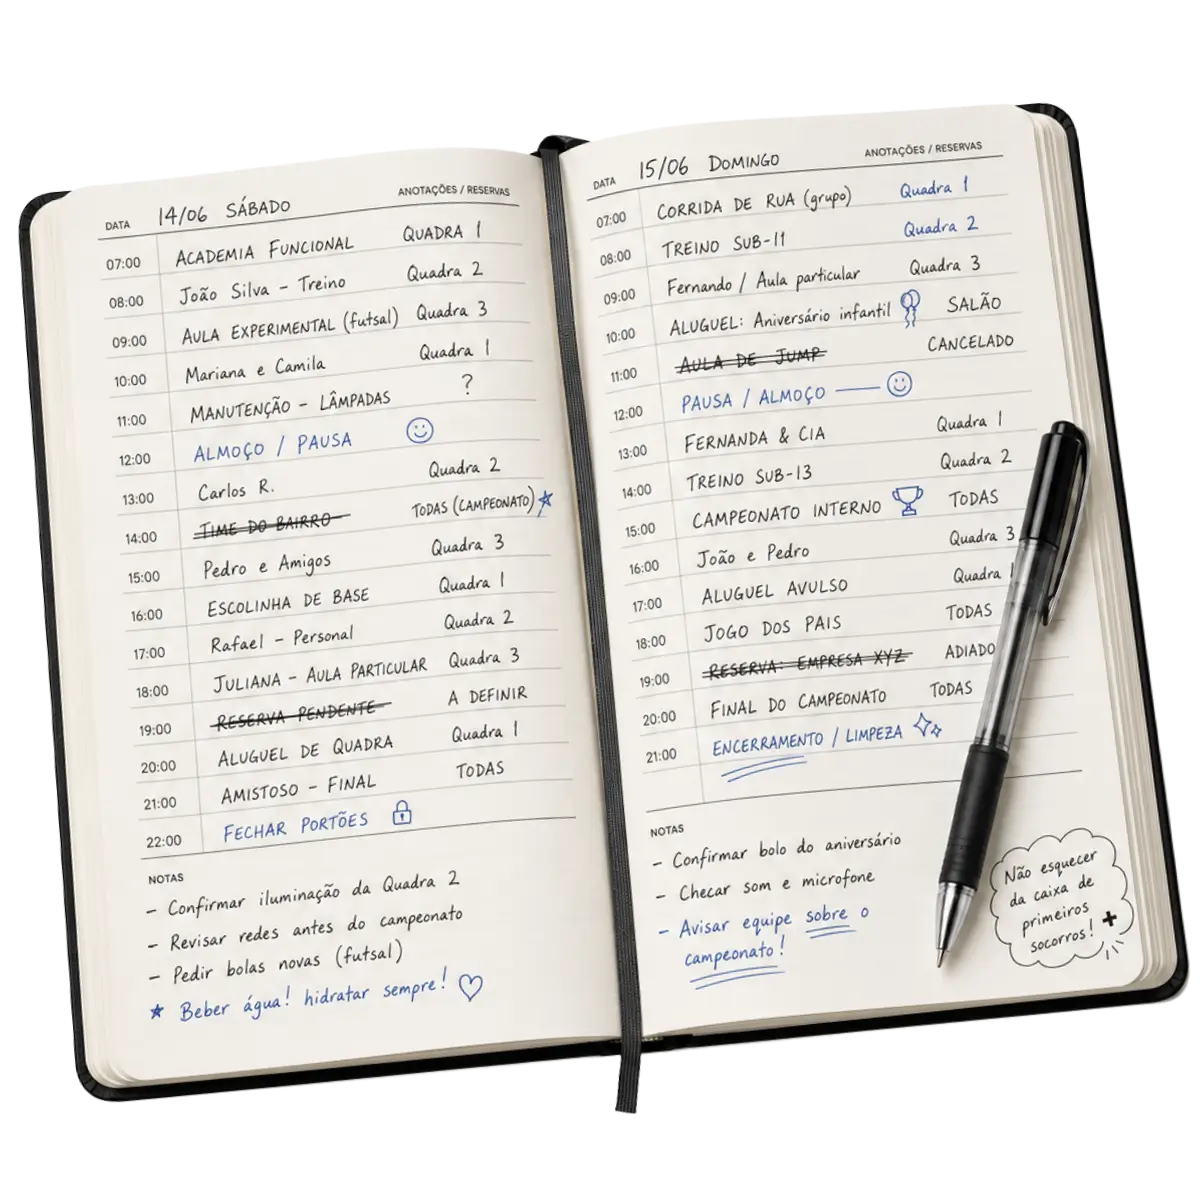 DATA 14/06 SÁBADO ANOTAÇÕES / RESERVAS
07:00 ACADEMIA FUNCIONAL QUADRA 1
08:00 João Silva - Treino Quadra 2
09:00 AULA EXPERIMENTAL (futsal) Quadra 3
10:00 Mariana e Camila Quadra 1
11:00 MANUTENÇÃO - LÂMPADAS ?
12:00 ALMOÇO / PAUSA
13:00 Carlos R. Quadra 2
14:00 TIME DO BAIRRO TODAS (CAMPEONATO)
15:00 Pedro e Amigos Quadra 3
16:00 ESCOLINHA DE BASE Quadra 1
17:00 Rafael - Personal Quadra 2
18:00 JULIANA - AULA PARTICULAR Quadra 3
19:00 RESERVA PENDENTE A DEFINIR
20:00 ALUGUEL DE QUADRA Quadra 1
21:00 AMISTOSO - FINAL TODAS
22:00 FECHAR PORTÕES
NOTAS
- Confirmar iluminação da Quadra 2
- Revisar redes antes do campeonato
- Pedir bolas novas (futsal)
★ Beber água! hidratar sempre! ♡
DATA 15/06 DOMINGO ANOTAÇÕES / RESERVAS
07:00 CORRIDA DE RUA (grupo) Quadra 1
08:00 TREINO SUB-11 Quadra 2
09:00 Fernando / Aula particular Quadra 3
10:00 ALUGUEL: Aniversário infantil SALÃO
11:00 AULA DE JUMP CANCELADO
12:00 PAUSA / ALMOÇO
13:00 FERNANDA & CIA Quadra 1
14:00 TREINO SUB-13 Quadra 2
15:00 CAMPEONATO INTERNO TODAS
16:00 João e Pedro Quadra 3
17:00 ALUGUEL AVULSO Quadra 1
18:00 JOGO DOS PAIS TODAS
19:00 RESERVA: EMPRESA XYZ ADIADO
20:00 FINAL DO CAMPEONATO TODAS
21:00 ENCERRAMENTO / LIMPEZA
NOTAS
- Confirmar bolo do aniversário
- Checar som e microfone
- Avisar equipe sobre o
campeonato!
Não esquecer
da caixa de
primeiros
socorros!